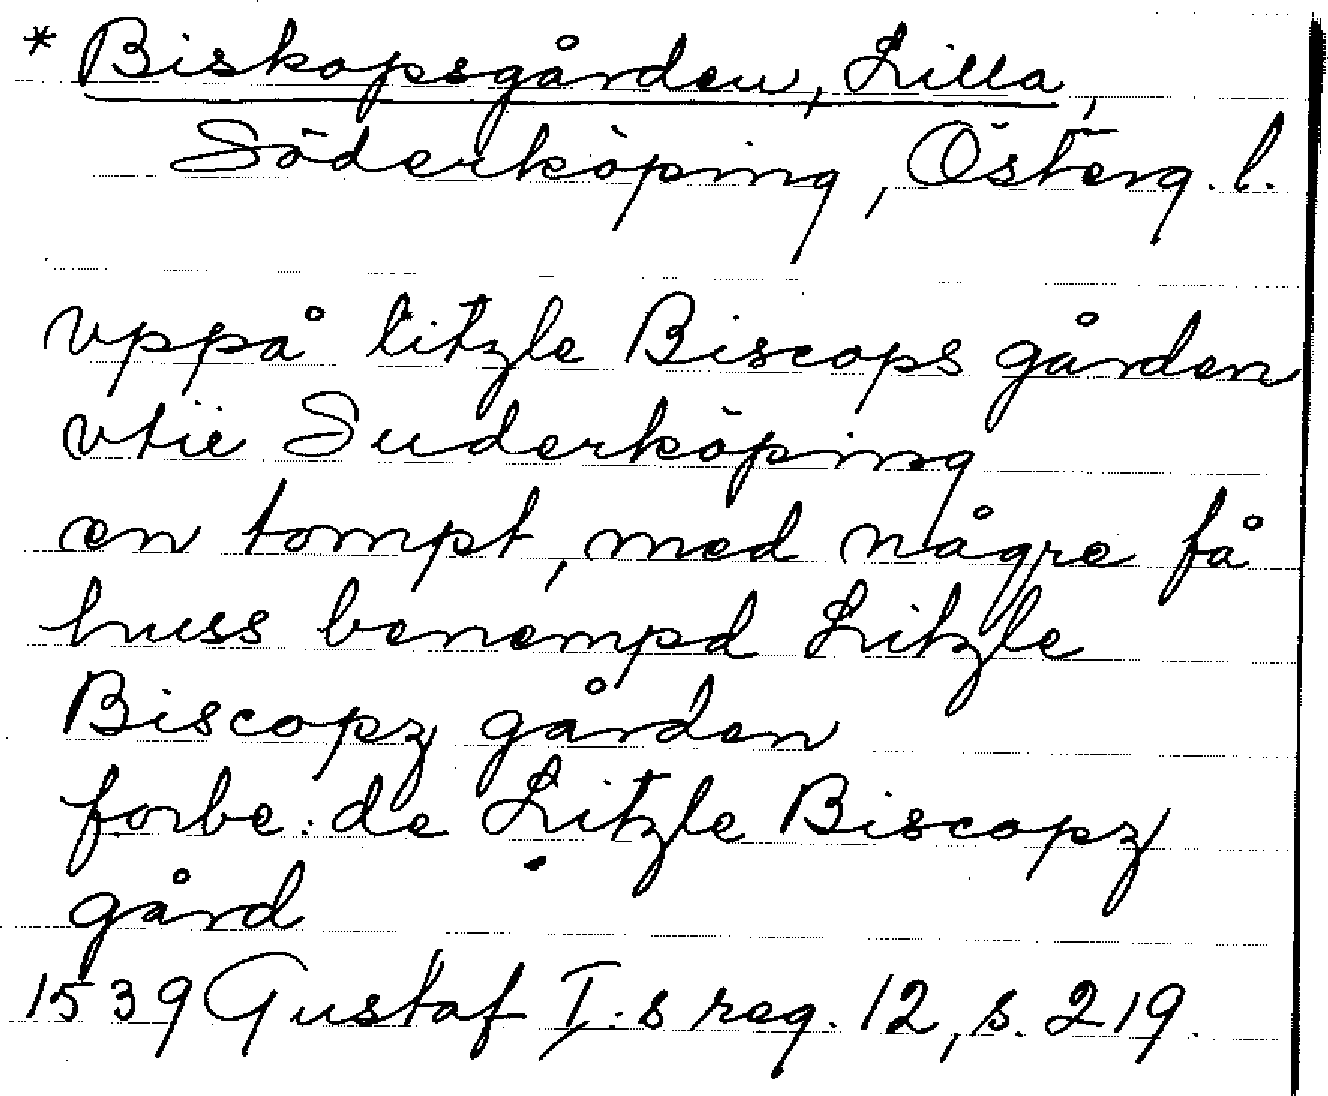 * Biskopsgården, Lilla,
Söderköping, Österg. l.
vppå litzle Biscops gården
vtie Suderköping
en tompt, med någre få
huss benempd Litzle
Biscopz gården
forbe:de Litzle Biscopz
gård
1539 Gustaf I:s reg. 12, s. 219.